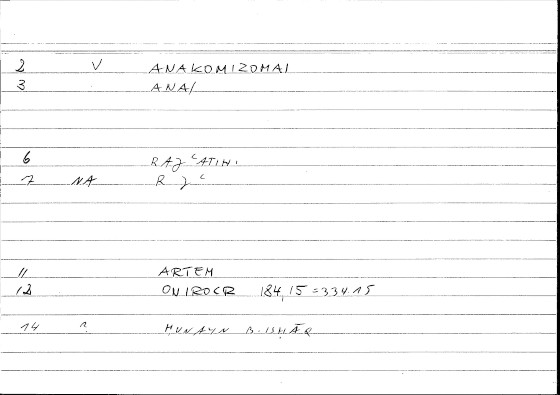 2 V ANAKOMIZOMAI
3 ANAI
6 RAJʿATIHI
7 NA R J ʿ
11 ARTEM
12 ONIROCR 184,15=334.15
14 ḤUNAYN B.ISḤĀQ